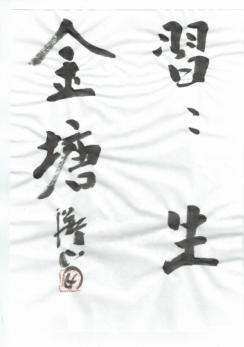 習〻生
金塘